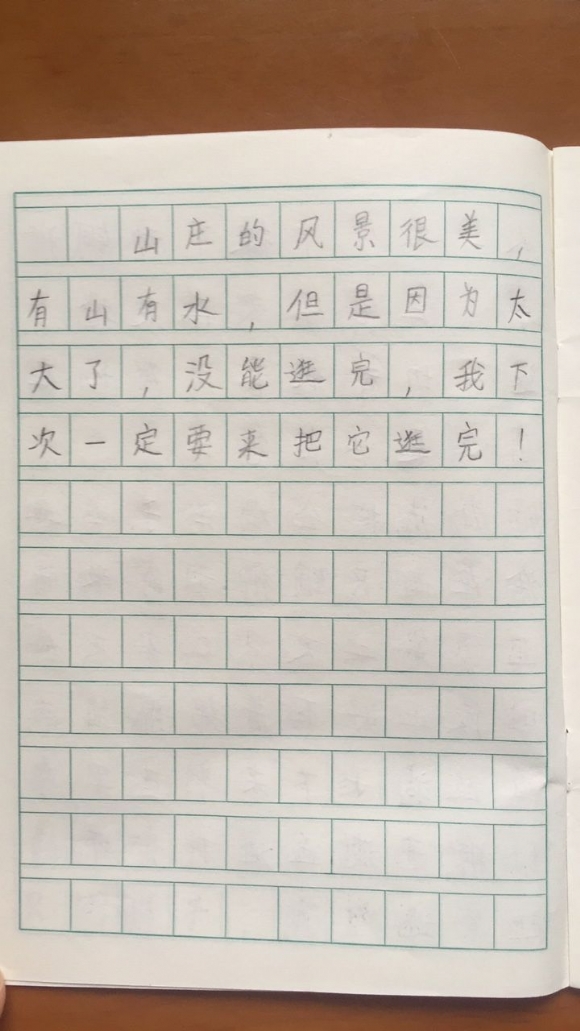 山庄的风景很美，
有山有水，但是因为太
大了，没能逛完，我下
次一定要来把它逛完！